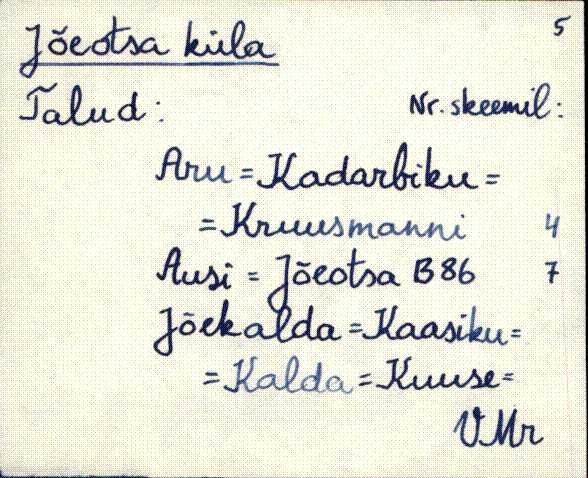 5
Jõeotsa küla
Talud: Nr. skeemil:
Aru = Kadarbiku =
= Kruusmanni 4
Ausi = Jõeotsa B86 7
Jõekalda = Kaasiku =
= Kalda = Kuuse =
VMr